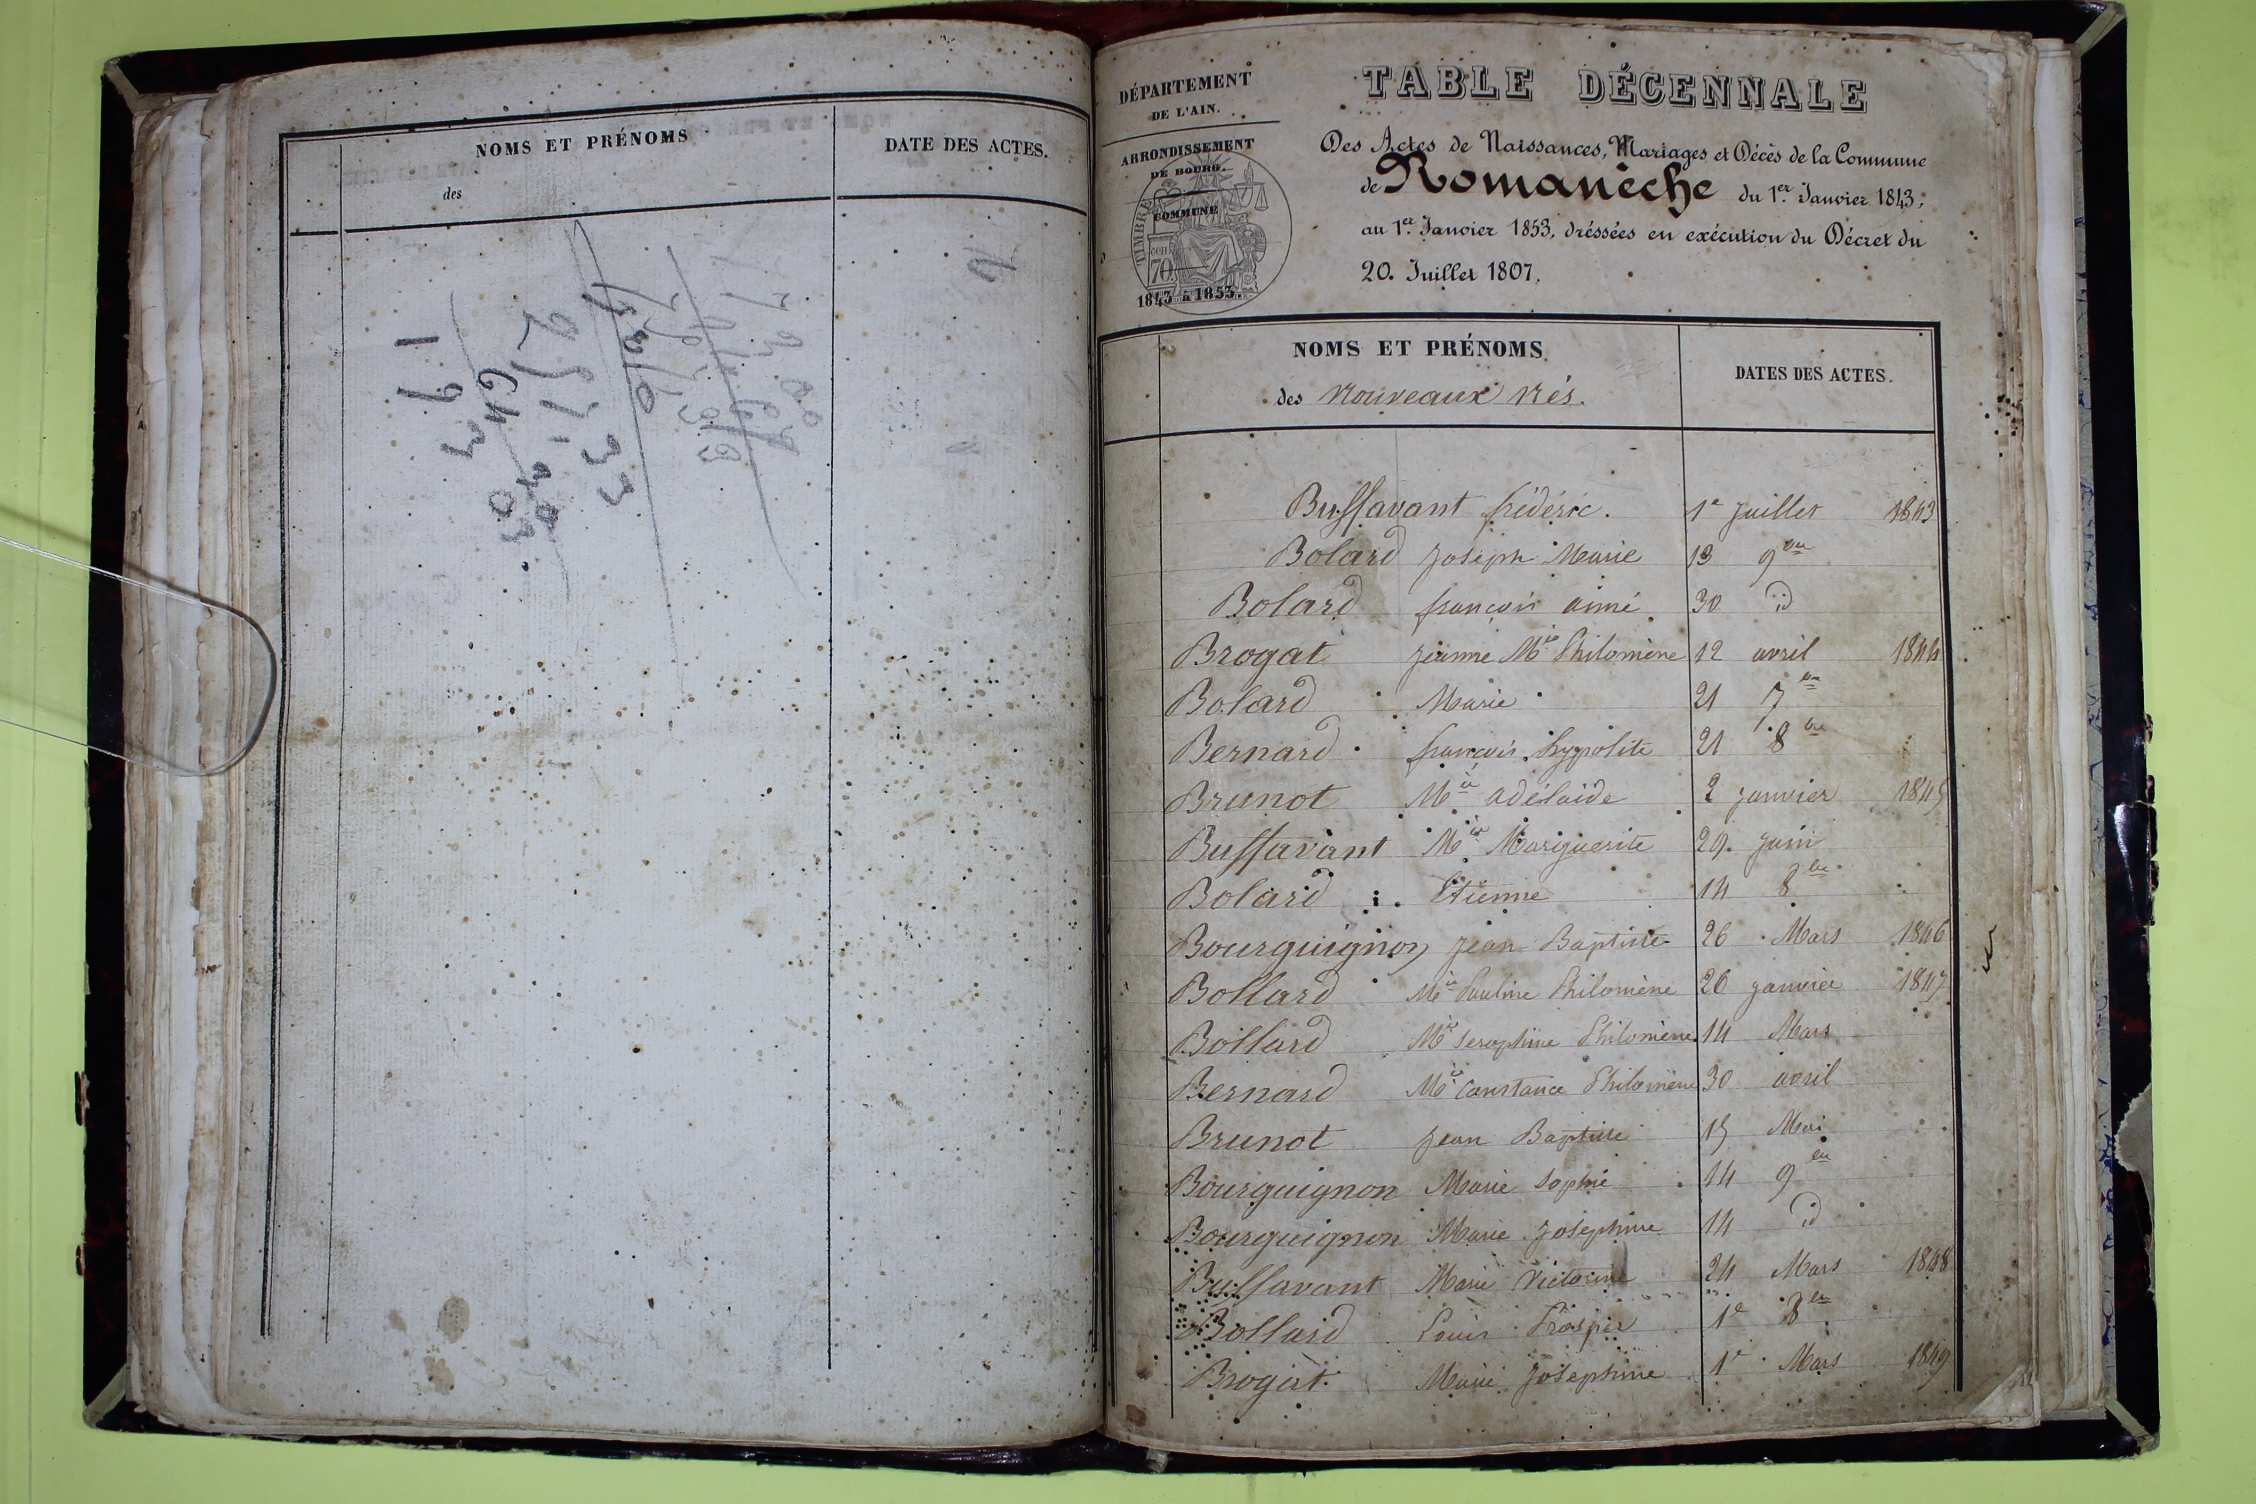 NOMS ET PRÉNOMS
des
DATE DES ACTES.
DÉPARTEMENT
DE L'AIN.
ARRONDISSEMENT
DE BOURG.
COMMUNE
TIMBRE
cen.
70
1843 à 1853.
TABLE DÉCENNALE
Des Actes de Naissances, Mariages et Décès de la Commune
de Romanèche du 1er. Janvier 1843,
au 1er. Janvier 1853, dréssées en exécution du Décret du
20. Juillet 1807.
NOMS ET PRÉNOMS
des Nouveaux Nés.
DATES DES ACTES.
Buffavant frédéric. 1e Juillet 1843
Bolard Joseph Marie 13 9bre
Bolard françois aimé 30 id
Brogat jeanne Mie Philomène 12 avril 1844
Bolard Marie 21 7bre
Bernard françois hyppolite 21 8bre
Brunot Mie adélaïde 2 janvier 1845
Buffavant Mie Marguerite 29. juin
Bolard Etienne 14 8bre
Bourguignon jean Baptiste 26 Mars 1846
Bollard Mie Pauline Philomène 26 janvier 1847
Bollard Mie seraphine Philomène 14 Mars
Bernard Mie Constance Philomène 30 avril
Brunot jean Baptiste 15 Mai
Bourguignon Marie sophie 14 9bre
Bourguignon Marie Josephine 14 id
Buffavant Marie Victorine 24 Mars 1848
Bollard Louis Prosper 1e 8bre
Brogat Marie Josephine 1e Mars 1849